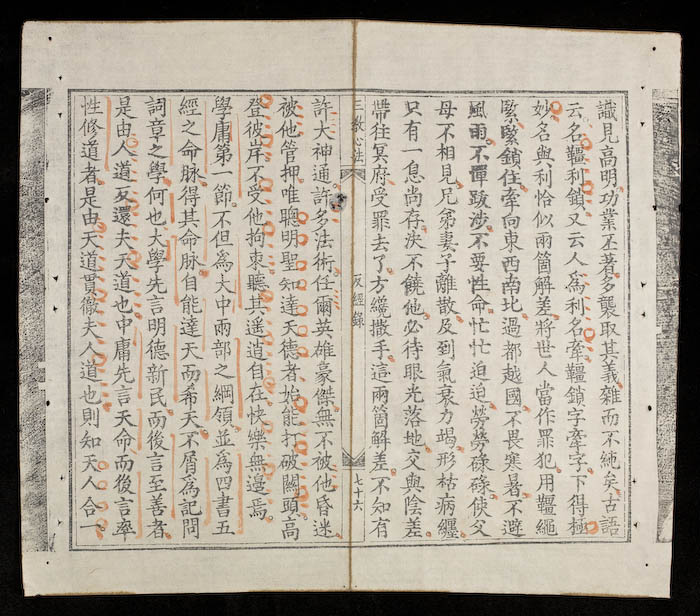 識見高明功業丕著多襲取其義雜而不純矣古語
云名韁利鎖又云人爲利名牽韁鎖字牽字下得極
妙名與利恰似兩箇解差將世人當作罪犯用韁繩
緊緊鎖住牽向東西南北過都越國不畏寒暑不避
風雨不憚跋涉不要性命忙忙迫迫勞勞碌碌使父
母不相見兄弟妻子離散及到氣衰力竭形枯病纏
只有一息尚存決不饒他必待眼光落地交與陰差
帶往冥府受罪去了方纔撒手這兩箇解差不知有
三教心法
反經錄
七十六
許大神通許多法術任爾英雄豪傑無不被他昏迷
被他管押唯聰明聖知達天德者始能打破關頭高
登彼岸不受他拘束聽其逍遙自在快樂無邊焉
學庸第一節不但爲大中兩部之綱領並爲四書五
經之命脈得其命脈自能達天而希天不屑爲記問
詞章之學何也大學先言明德新民而後言至善者
是由人道反還夫天道也中庸先言天命而後言率
性修道者是由天道貫徹夫人道也則知天人合一